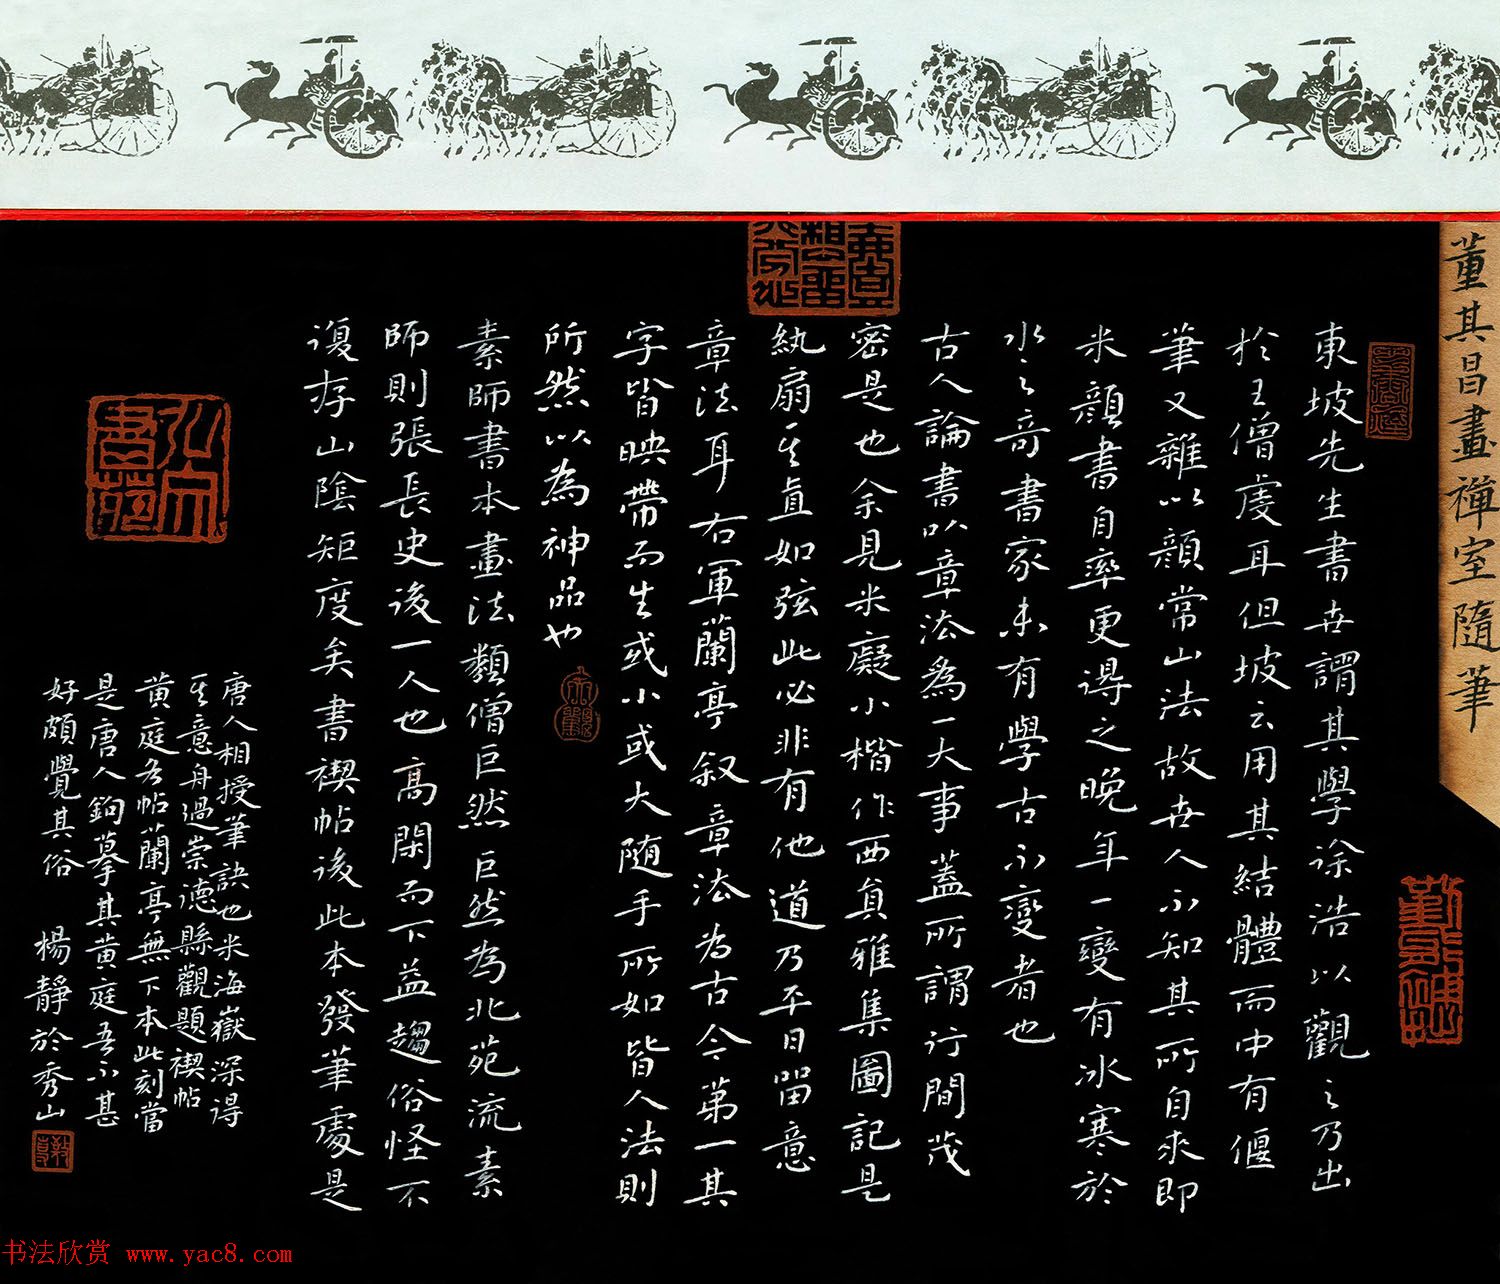 董其昌畫禪室隨筆
東坡先生書世謂其學徐浩以觀之乃出
於王僧虔耳但坡云用其結體而中有偃
筆又雜以顏常山法故世人不知其所自來即
米顛書自率更得之晚年一變有冰寒於
水之奇書家未有學古不變者也
古人論書以章法為一大事蓋所謂行間茂
密是也余見米癡小楷作西園雅集圖記是
紈扇其直如弦此必非有他道乃平日留意
章法耳右軍蘭亭叙章法為古今第一其
字皆映帶而生或小或大随手所如皆入法則
所然以為神品也
素師書本畫法類僧巨然巨然為北苑流素
師則張長史後一人也高閑而下益趨俗怪不
復存山陰矩度矣書禊帖後此本發筆處是
唐人相授筆訣也米海嶽深得
其意舟過崇德縣觀題禊帖
黄庭名帖蘭亭無下本此刻當
是唐人鉤摹其黄庭吾不甚
好頗覺其俗
楊靜於秀山
书法欣赏 www.yac8.com